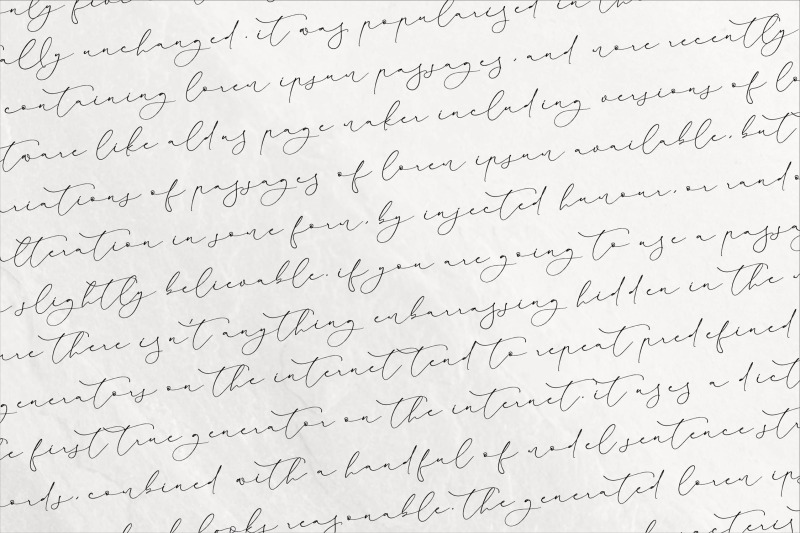 only five
ally unchanged. it was popularised in the
containing lorem ipsum passages. and more recently
tware like aldus page maker including versions of lo
riations of passages of lorem ipsum available. but
lteration in some form. by injected humour. or rando
slightly believable. if you are going to use a passa
ure there isn't anything embarrassing hidden in the
generators on the internet tend to repeat predefined
e first true generator on the internet. it uses a dict
ords. combined with a handful of model sentence str
looks reasonable. the generated lorem ips